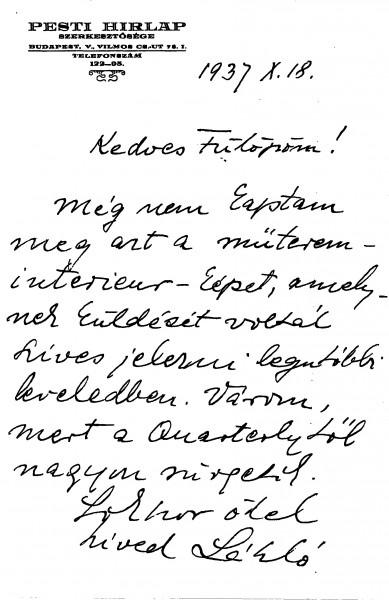 PESTI HIRLAP
SZERKESZTŐSÉGE
BUDAPEST, V., VILMOS CS.-UT 78. I.
TELEFONSZÁM
122-95.
1937 X. 18.
Kedves Fülöpöm!
Még nem kaptam
meg azt a műterem-
interieur-képet, amely-
nek küldését voltál
szives jelezni legutóbbi
leveledben. Várom,
mert a Quarterlytől
nagyon sürgetik.
Sokszor ölel
hived László